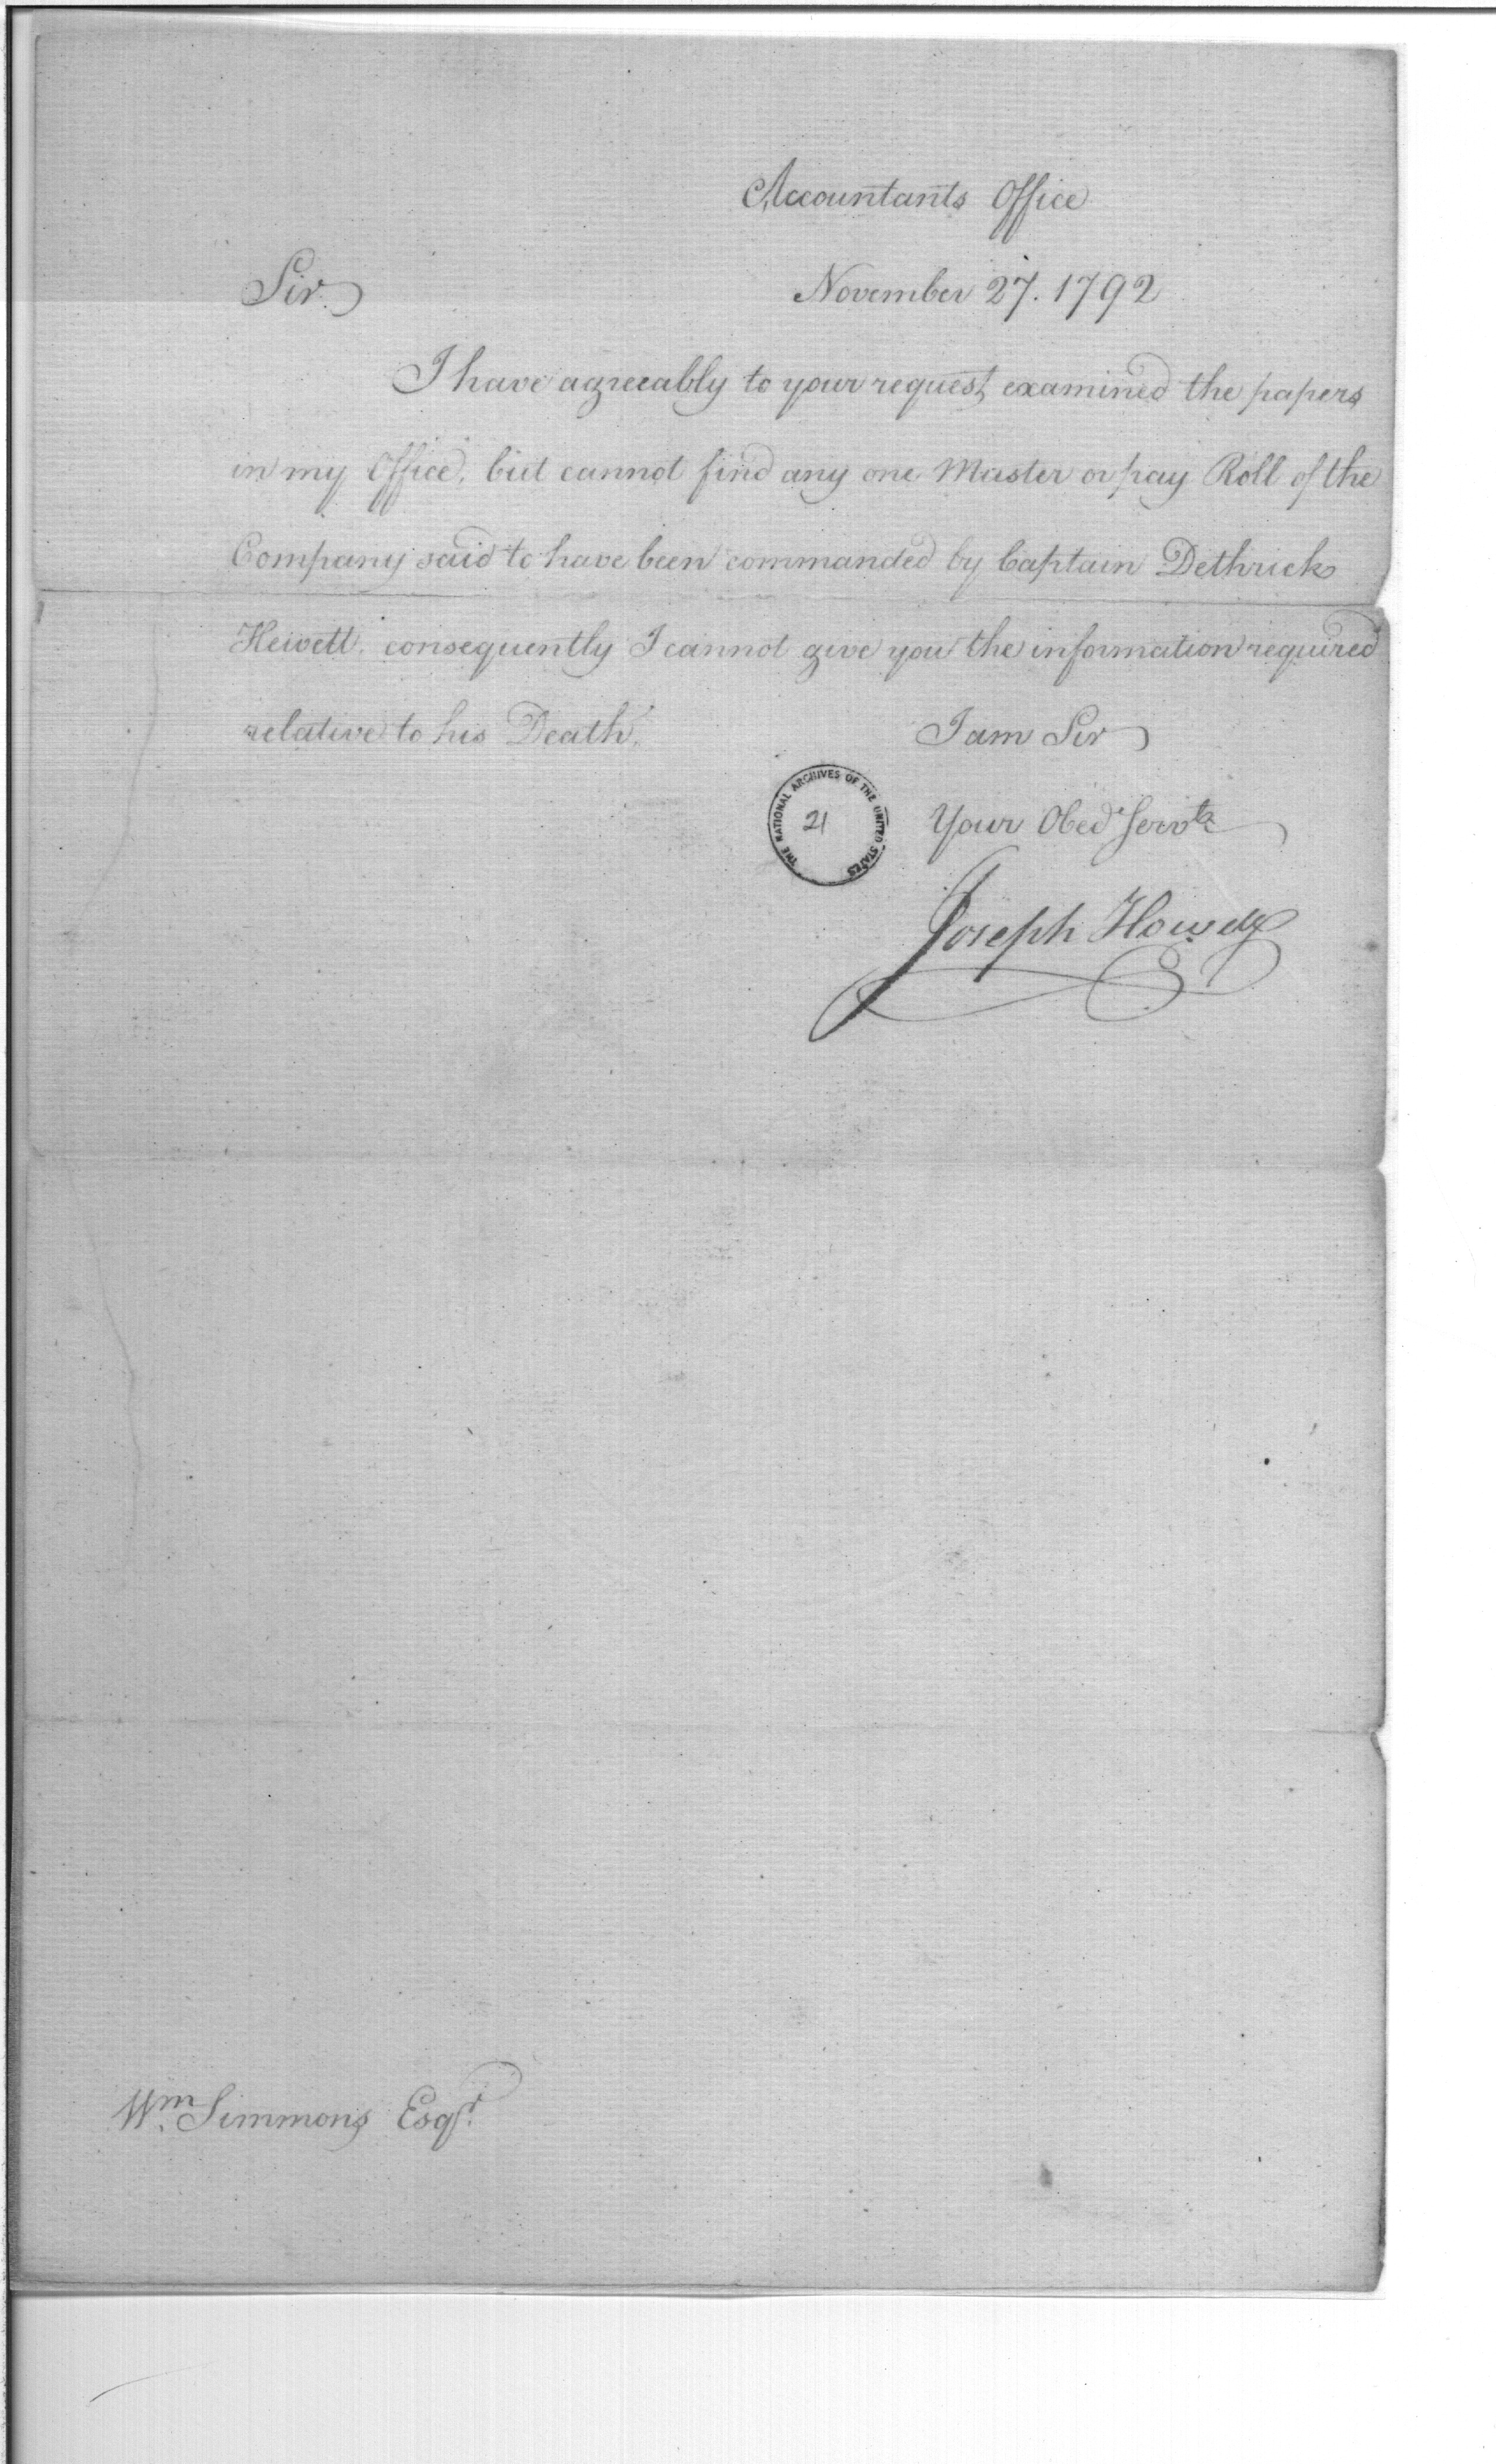 Accountants Office
Sir
November 27. 1792
I have agreeably to your request examined the papers
in my Office, but cannot find any one Muster or pay Roll of the
Company said to have been commanded by Captain Dethrick
Hewett. consequently I cannot give you the information required
relative to his Death.
I am Sir
THE NATIONAL ARCHIVES OF THE UNITED STATES
21
Your Obed Servt
Joseph Howell
Wm Simmons Esqr.